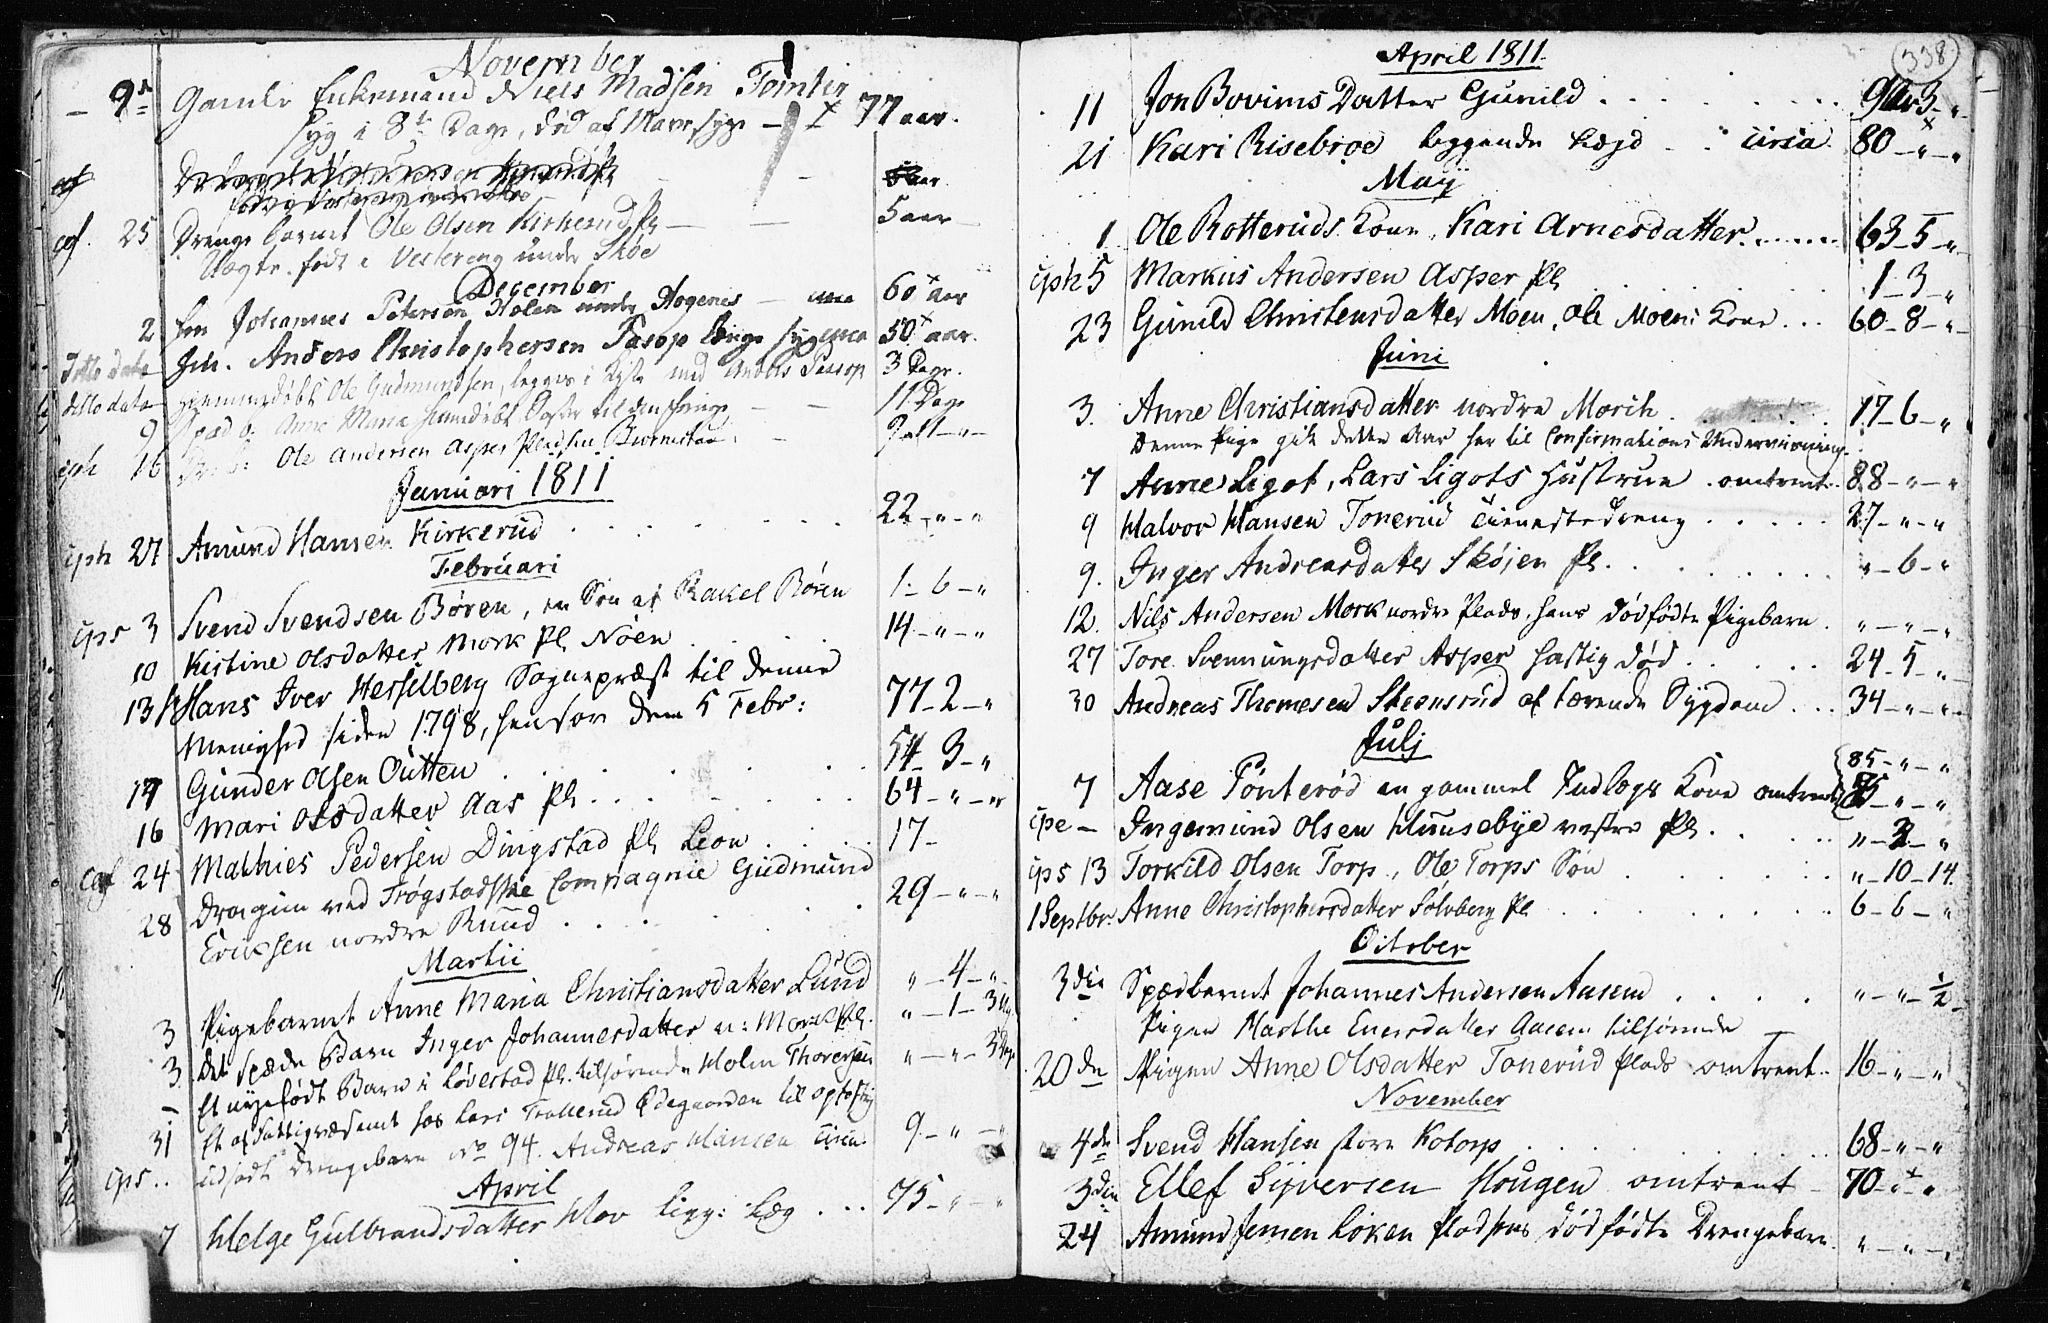 November
9de Gamle Enkemand Niels Madsen Tomter
Syg i 8te Dage, død af Mavesyge 77 aar.
5 aar
cof. 25 Drenge barnet Ole Olsen Kirkerud Pl 5 aar
Vægter. født i Vestereng under Skøe
December
2 Johannes Petersen Holen under Hogenes 60 aar
Ditto dato Anders Christophersen Tasop længe syg 50 aar.
ditto dato hjemmedøbt Ole Gudmundsen, begges i Kiste med Anders Tasop 3 Dage.
9 Spæd b: Anne Maria hjemdøbt 11 Dage
cph 16 Ole Andersen Asper
Januari 1811
cph 27 Amund Hansen Kirkerud . . . . 22 - „ - „
Februari
cps 3 Svend Svendsen Børen, en Søn af Rakel Børen 1 - 6 - „
10 Kistine Olsdatter Mork Pl Nøen . . . 14 - „ - „
13 Hans Iver Hesselberg Sognepræst til denne
Menighed siden 1798, hensov den 5 Febr: 77 - 2 - „
14 Gunder Olsen Outten . . . . 54 - 3 - „
16 Mari Olsdatter Aas Pl . . . . 64 - „ - „
cof 24 Mathies Pedersen Dingstad Pl Leon . . . 17 -
28 Dragun ved Trøgstadske Compagnie Gudmund
Eriksen nordre Ruud . . . . 29 - „ - „
Martii
3 Pigebarnet Anne Maria Christiansdatter Lund „ - 4 - „
3 Det spæde Barn Inger Johannesdatter n: Mork Pl. „ - 1 - 3 Ug.
- Et nyefødt Barn i Løvestad Pl. tilhørende Holm Thoresen „ - „ - 3 Dage
31 Et af Fattigvæsenet hos Lars Trollerud Ødegaarden til opfostr
cps.. udsadt Drengebarn No 94. Andreas Hansen circa. 9 - „ - „
April
7 Helge Gulbrandsdatter Hov ligg: Læg . . . 75 - „ - „
338
April 1811.
11 Jon Bovims Datter Gunild . . . . .
21 Kari Risebroe liggende Lægd - circa. 80 - „ - „
Maij
1 Ole Rotteruds Kone, Kari Arnesdatter . . . . 63 - 5 - „
cph 5 Markus Andersen Asper Pl . . . . 1 - 3 - „
23 Gunild Christensdatter Moen, Ole Moens Kone . . . 60 - 8 - „
Juni
3. Anne Christiansdatter nordre Morch . . . 17 - 6 - „
Denne Pige gik dette Aar her til Confirmations Underviisning.
7 Anne Ligot, Lars Ligots Hustrue . omtrent. 88 - „ - „
9 Halvor Hansen Tonerud Tienestedreng . . . . 27 - „ - „
9. Inger Andreasdatter Skøjen Pl. . . . . „ - 6 - „
12. Nils Andersen Mork nordre Plads, hans dødfødte Pigebarn . „ - „ - „
27 Tore Svenningsdatter Asper hastig død . . . . 24 - 5 - „
30 Andreas Thomesen Skeensrud af tærende Sygdom . . . 34 - „ - „
Julj
85 - „ - „
7 Aase Pønterød en gammel Indlægs Kone omtrent 85 - „ - „
cpe - Ingemund Olsen Huusebye vestre Pl. . . . „ - 3 - „
cps 13 Torkild Olsen Torp, Ole Torps Søn . . . . „ - 10 - 14.
1 Septbr. Anne Christophersdatter Solvberg Pl . . . . 6 - 6 - „
October
3die Spædbarnet Johannes Andersen Aasem . . . . „ - „ - ½
Pigen Marthe Enersdatter Aasem tilhørende
20de Pigen Anne Olsdatter Tonerud Plads omtrent.. 16 - „ - „
November
4de Svend Hansen store Kotorp . . . . 68 - „ - „
3die Ellef Siversen Hougen omtrent - 70 - „ - „
24 Amund Jensen Løken Pladsens dødfødte Drengebarn. „ - „ - „